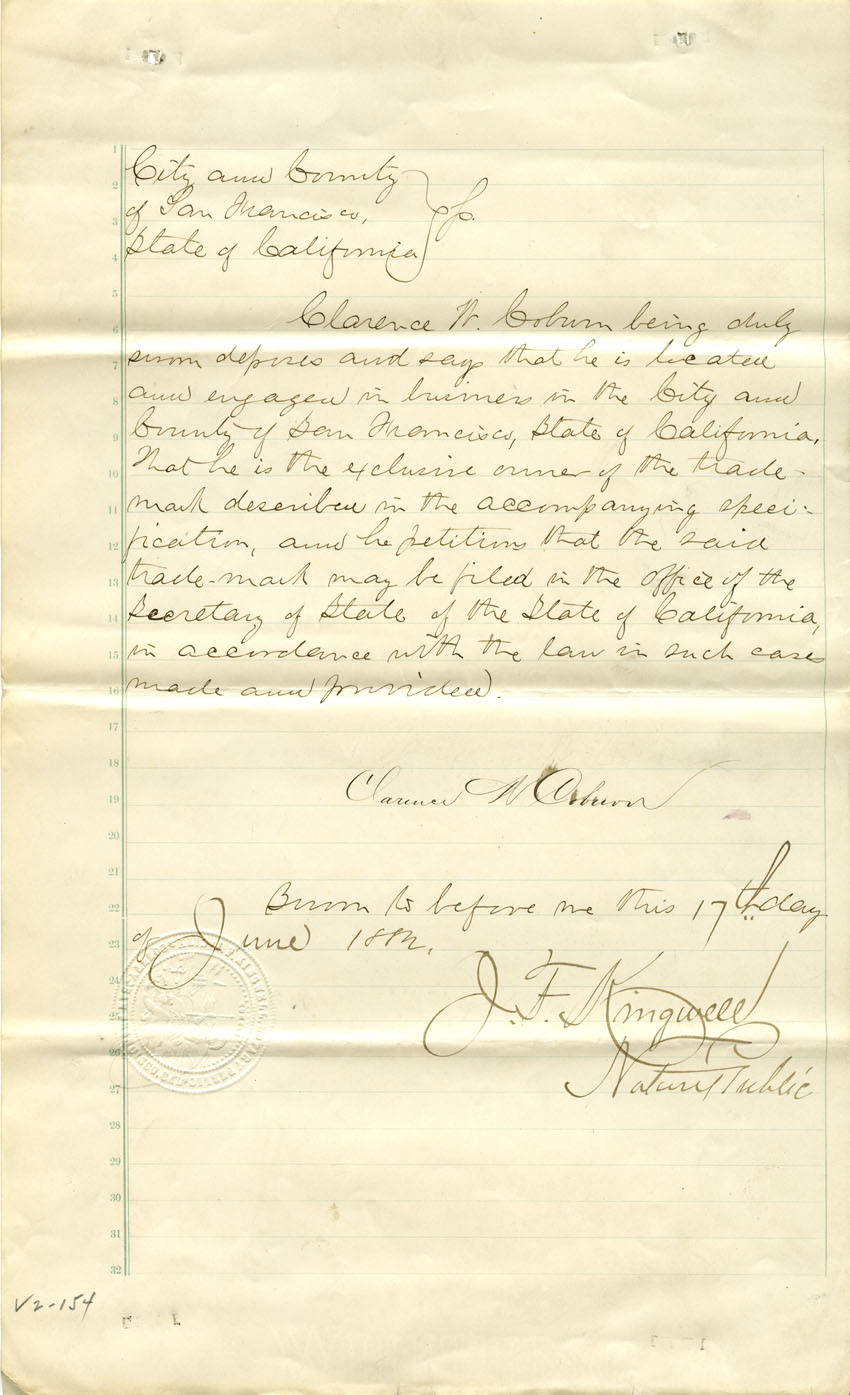 City and County
of San Francisco, } ss.
State of California
Clarence W. Coburn being duly
sworn deposes and says that he is located
and engaged in business in the City and
County of San Francisco, State of California.
That he is the exclusive owner of the trade-
mark described in the accompanying speci-
fication, and he petitions that the said
trade-mark may be filed in the office of the
Secretary of State of the State of California,
in accordance with the law in such cases
made and provided.
Clarence W Coburn
Sworn to before me this 17th day
of June 1882.
J. F. Kingwell
Notary Public
V2-154
1
2
3
4
5
6
7
8
9
10
11
12
13
14
15
16
17
18
19
20
21
22
23
24
25
26
27
28
29
30
31
32